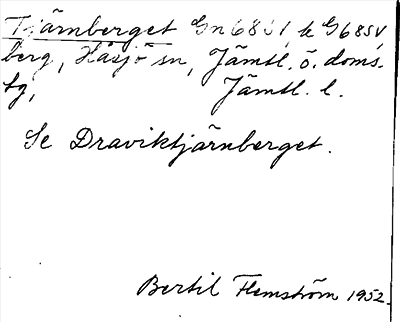 Tjärnberget Gn 68S1, k G68SV,
berg, Håsjö sn, Jämtl. ö. doms.
tg, Jämtl. l.
Se Draviktjärnberget.
Bertil Flemström 1952.